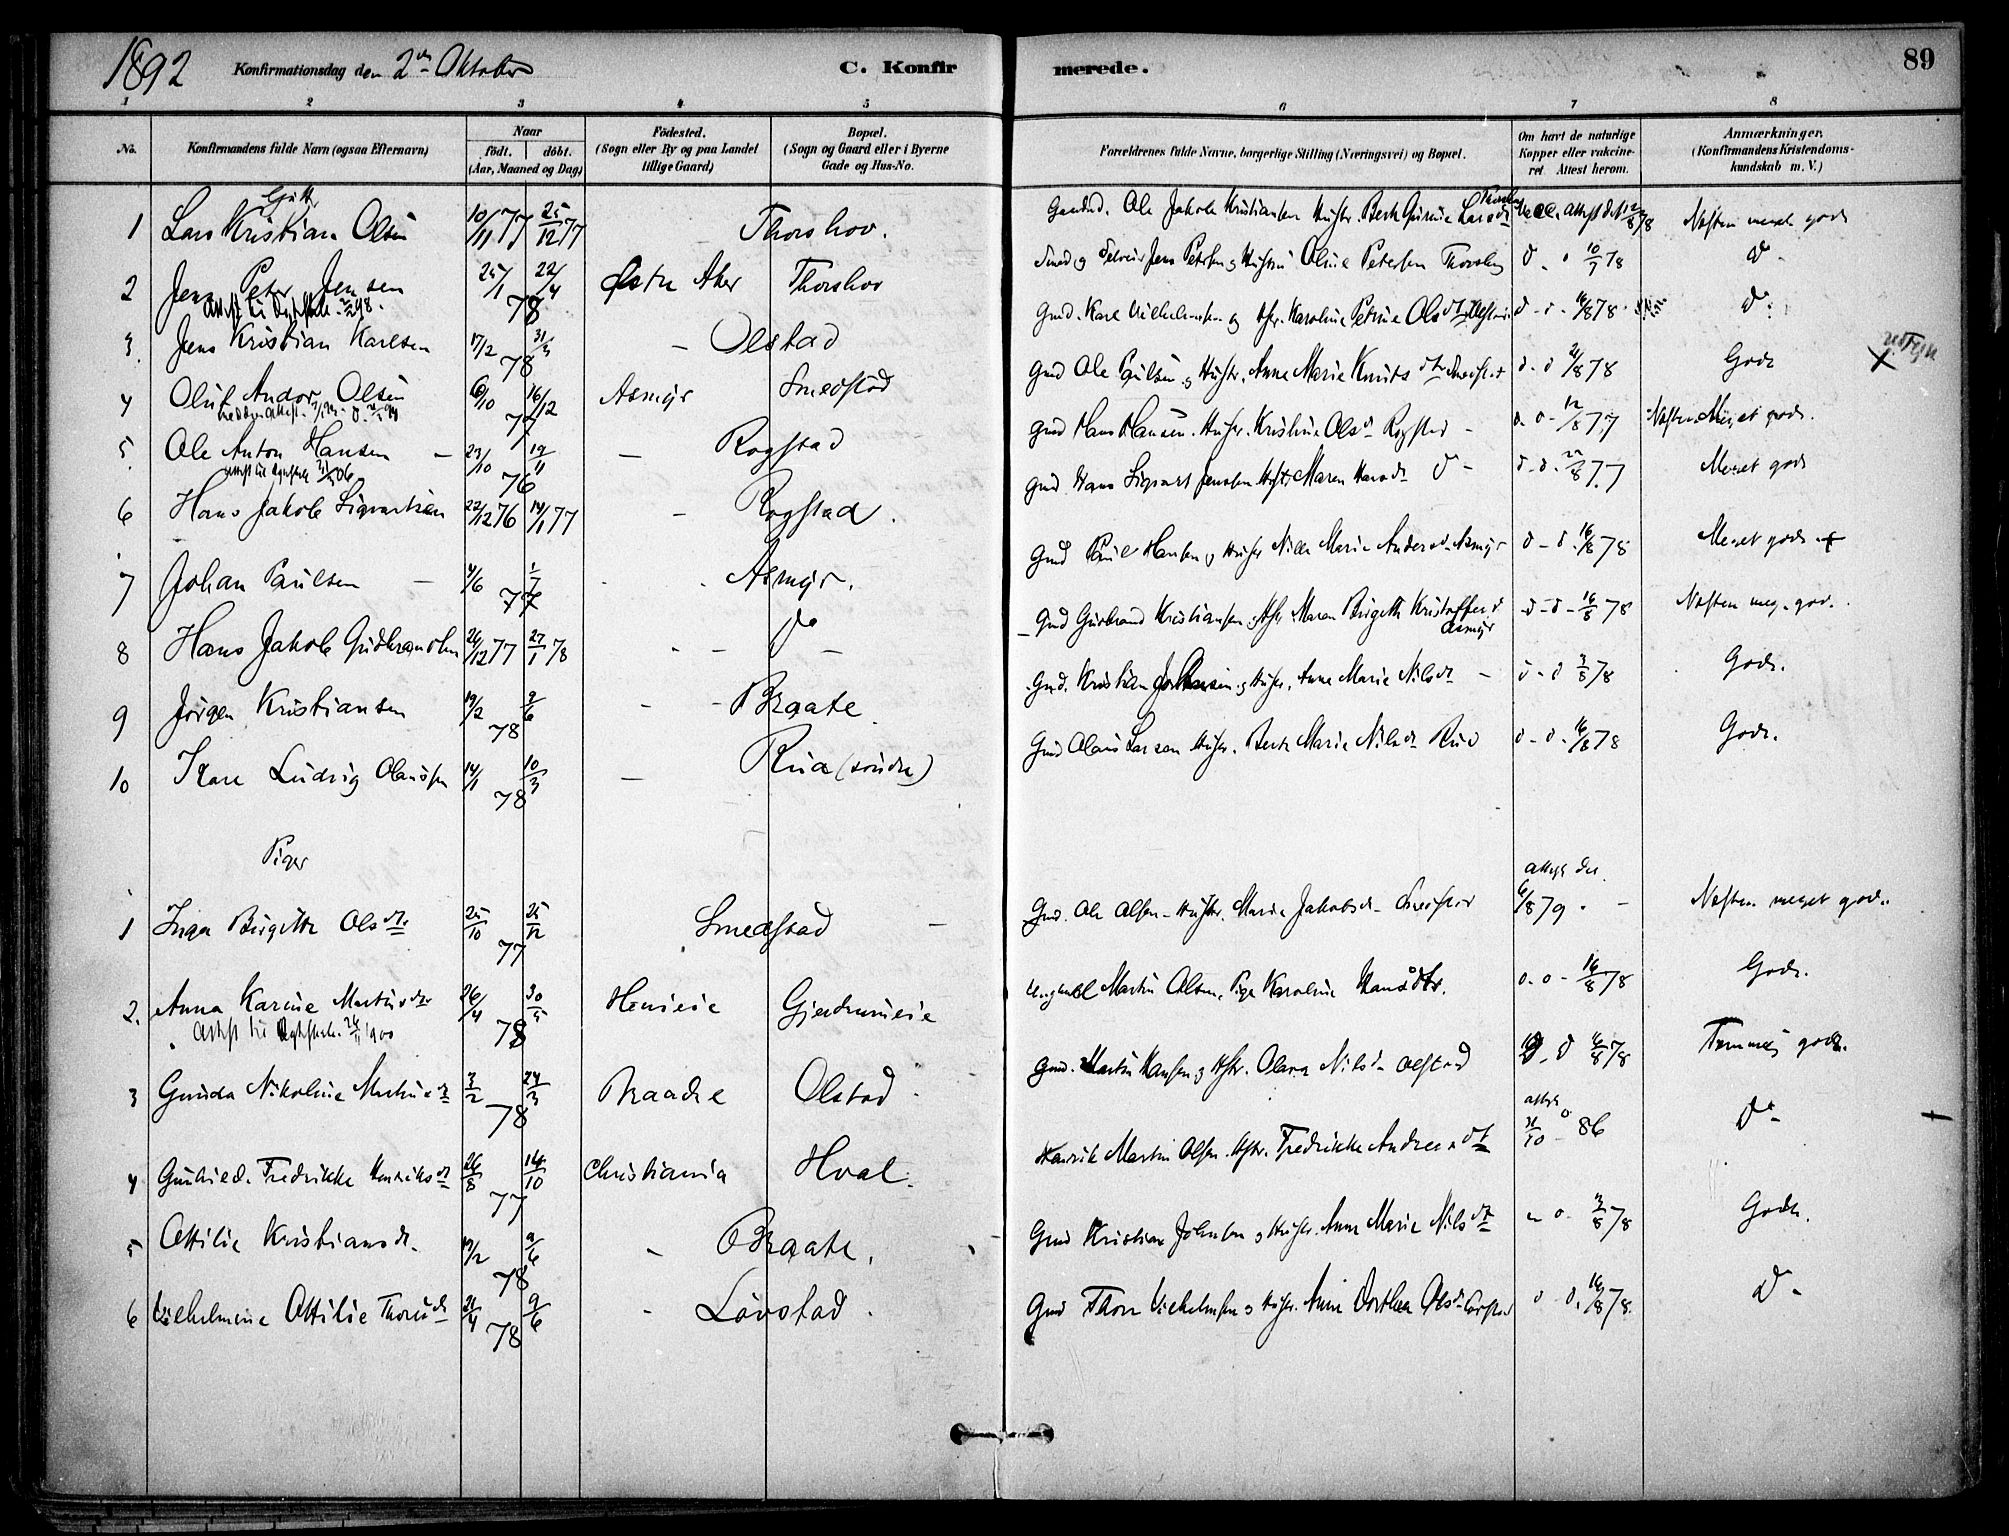 1892 Konfirmationsdag den 2den Oktober C. Konfirmerede. 89
1 2 3 4 5 6 7 8
No. Konfirmandens fulde Navn (ogsaa Efternavn) Naar født. døbt. (Aar, Maaned og Dag) Fødested. (Sogn eller By og paa Landet tillige Gaard) Bopæl. (Sogn og Gaard eller i Byerne Gade og Hus-No. Forældrenes fulde Navne, borgerlige Stilling (Næringsvei) og Bopæl. Om havt de naturlige Kopper eller vakcineret Attest herom. Anmærkninger. (Konfirmandens Kristendomskundskab m. V.)
1 Lars Kristian Olsen 10/11 77 25/12 77 - Thorshov. Ole Jakob Kristiansen Hustr. Larsd 78 Næsten meget godt
2 Jens Peter Jensen 25/1 22/4 78 Østre Aker Thorshov Smed og Jens Petersen og Hustru Oline Petersen Thorshov d - 10/7 78 do -
3. Jens Kristian Karlsen 17/2 31/3 78 - Olstad Gmd. Karl Vilhelmsen og Hstr. Karoline Petrine Olsdt d - d - 16/8 78 do
4 Oluf Andor Olsen 6/10 16/12 77 Asmyr Smedstad Gmd Ole Paulsen og Hustr. Anne Marie Knutsdt d - d 21/8 78 Godt X
5. Ole Anton Hansen - 23/10 19/11 76 - Rogstad Gmd Hans Hansen Hustr. Kristine Olsd Rogstad - 12/8 77 Næsten Meget godt.
6 Hans Jakob Sigvartsen 22/12 76 14/1 77 - Rogstad. Gmd. Hans Sigvart Jensen Hstr Maren Hansdt d - d - d - 8 77 Meget godt
7 Johan Paulsen - 4/6 1/7 77 Asmyr. Gmd Paul Hansen og Hustr Marie Andersd. Asmyr d - d - 16/8 78 Meget godt
8 Hans Jakob Gudbrandsen 26/12 77 27/1 78 - - do - Gmd Gudbrand Kristiansen og Hstr Maren Birgitte Kristoffersd Asmyr d - d - 16/8 78 Næsten meg. godt.
9 Jørgen Kristiansen 19/2 9/6 78 - - Braate Gmd. Kristian Johnsen og Hustr. Anne Marie Nilsdt - d - d 3/8 78 Godt.
10 Karl Ludvig Olausen 14/1 10/3 78 - Rua (søndre) Gmd Olaus Larsen Hustr. Berte Marie Nilsdt Rud d - d - 16/8 78 Godt.
Piger
1 Inga Birgitte Olsdt. 25/10 25/12 77 Smedstad - Gmd. Ole Olsen - Hustr. Maria Jakobsd - Smedstad attest d. 6/8 79 - Næsten meget godt.
2. Anna Karine Martinsdtr 26/4 30/5 78 Henieie Gjerdrumseie Ungkarl Martin Olsen, Pige Karoline Hansdtr. 16/8 78 Godt.
3 Gunda Nikoline Martinsdt 3/2 24/3 78 Braadte Olstad Gmd. Martin Hansen og Hstr. Olava Nilsd - Olstad d 16/8 78 Temmelig godt.
4 Fredrikke Henriksdt 26/8 14/10 77 Christiania Hval. Henrik Martin Olsen. Hstr. Fredrikke Andreasdt attest 31/10 86 do -
5 Ottilie Kristiansdt. 19/2 9/6 78 - Braate. Gmd Kristian Johnsen og Hustr. Anne Marie Nilsdt 3/8 78 Godt.
6 Vilhelmine Ottilie Thorsd 21/4 9/6 78 - Løvstad. Gmd Thor Vilhelmsen og Hustr. Anne Dorthea Olsd Løvstad d - d. 16/8 78 do -